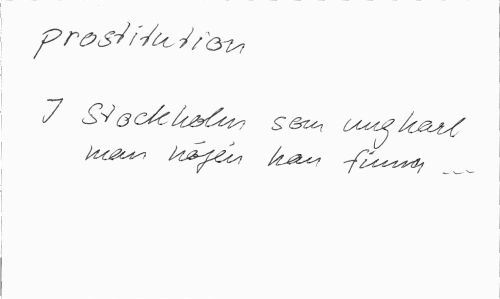 prostitution
I Stockholm som ungkarl
man nöjen kan finna ...